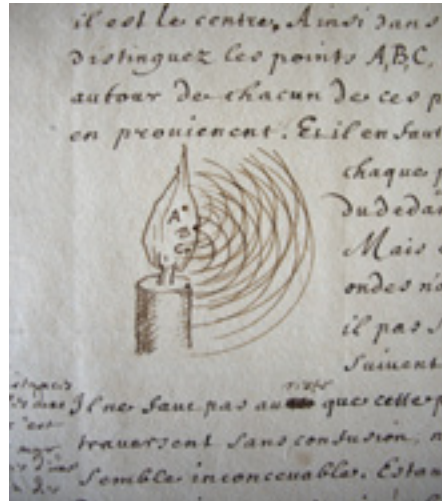 il est le centre. Ainsi dans
distinguez les points A, B, C,
autour de chacun de ces p
en provienent. Et il en faut
chaque p
A
B
C
du dedan
Mais
ondes n'o
il pas
suivent
Il ne faut pas au que cette p
traversent sans confusion, n
semble inconcevable. Estan